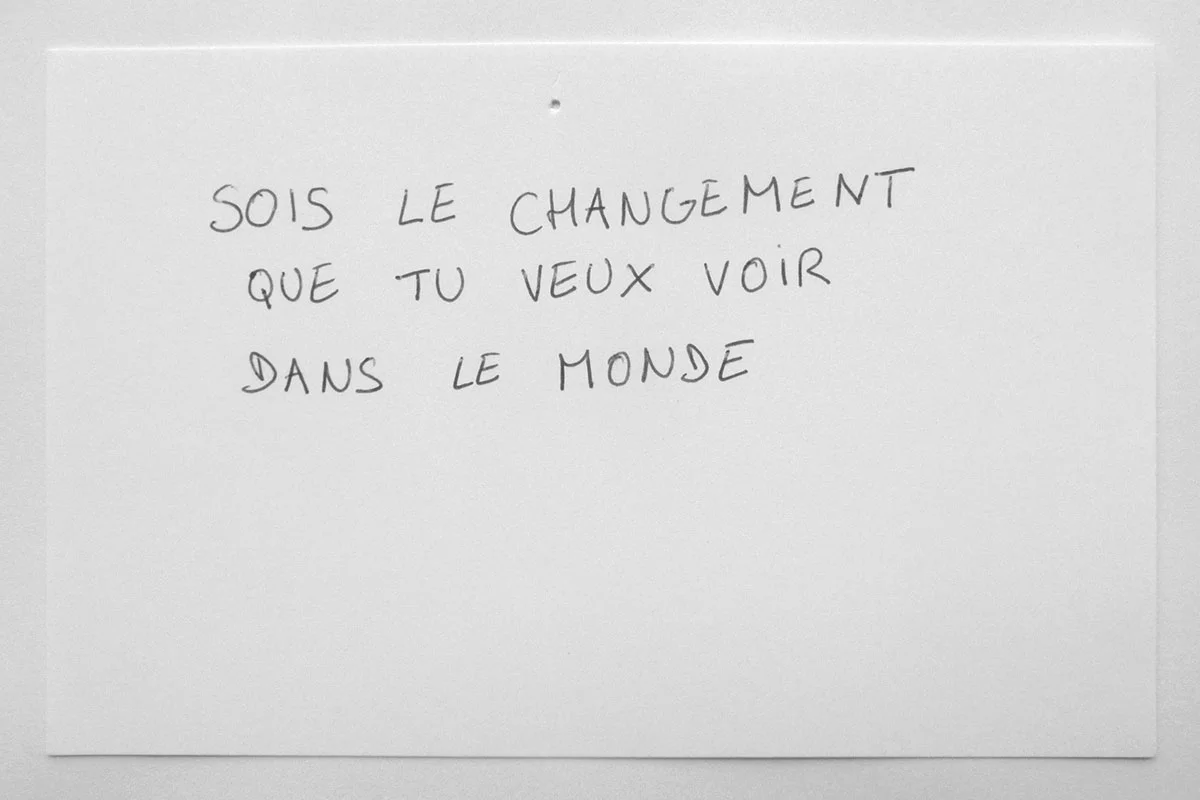 SOIS LE CHANGEMENT
QUE TU VEUX VOIR
DANS LE MONDE